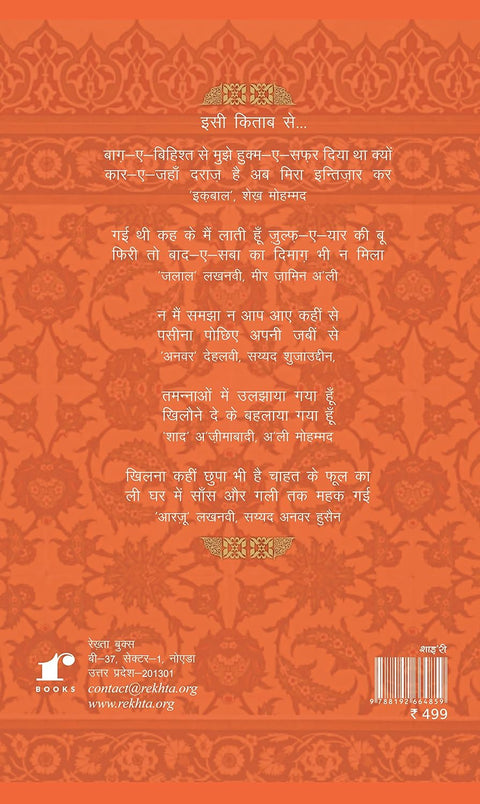 इसी किताब से...
बाग़-ए-बिहिश्त से मुझे हुक्म-ए-सफ़र दिया था क्यों
कार-ए-जहाँ दराज़ है अब मिरा इन्तिज़ार कर
'इक़बाल', शेख़ मोहम्मद
गई थी कह के मैं लाती हूँ जुल्फ़-ए-यार की बू
फिरी तो बाद-ए-सबा का दिमाग़ भी न मिला
'जलाल' लखनवी, मीर ज़ामिन अ'ली
न मैं समझा न आप आए कहीं से
पसीना पोछिए अपनी जबीं से
'अनवर' देहलवी, सय्यद शुजाउद्दीन,
तमन्नाओं में उलझाया गया हूँ
खिलौने दे के बहलाया गया हूँ
'शाद' अ'ज़ीमाबादी, अ'ली मोहम्मद
खिलना कहीं छुपा भी है चाहत के फूल का
ली घर में साँस और गली तक महक गई
'आरज़ू' लखनवी, सय्यद अनवर हुसैन
r
BOOKS
रेख़्ता बुक्स
बी-37, सेक्टर-1, नोएडा
उत्तर प्रदेश-201301
contact@rekhta.org
www.rekhta.org
शाइ'री
9 788192 664859
₹ 499